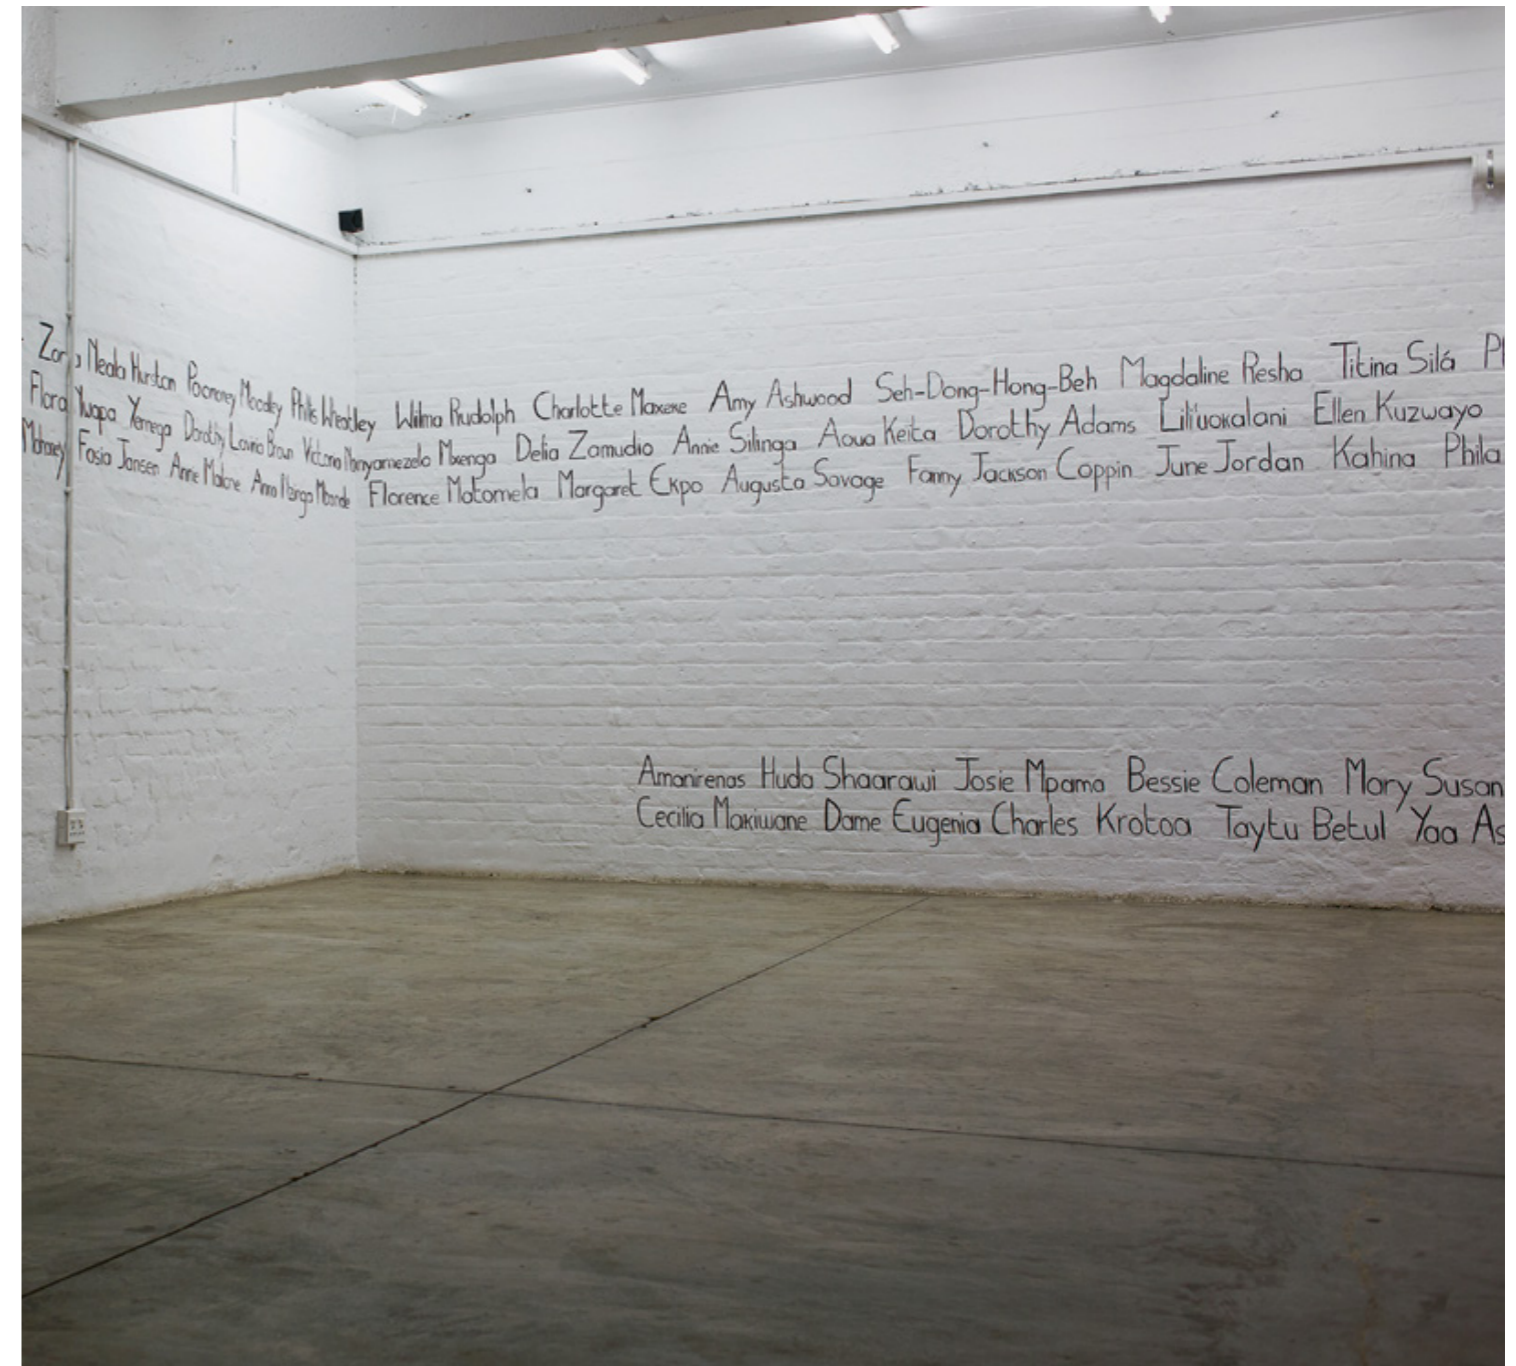 Zora Neala Hurston Poomoney Moodley Phillis Wheatley Wilma Rudolph Charlotte Maxeke Amy Ashwood Seh-Dong-Hong-Beh Magdaline Resha Titina Silá
Flora Nwapa Yemega Dorothy Lavinia Brown Victoria Nonyamezelo Mxenga Delia Zamudio Annie Silinga Aoua Keita Dorothy Adams Lili'uokalani Ellen Kuzwayo
Mahoney Fasia Jansen Annie Malone Anna Nzinga Mbande Florence Matomela Margaret Ekpo Augusta Savage Fanny Jackson Coppin June Jordan Kahina Phila
Amanirenas Huda Shaarawi Josie Mpama Bessie Coleman Mary Susan
Cecilia Makiwane Dame Eugenia Charles Krotoa Taytu Betul Yaa As